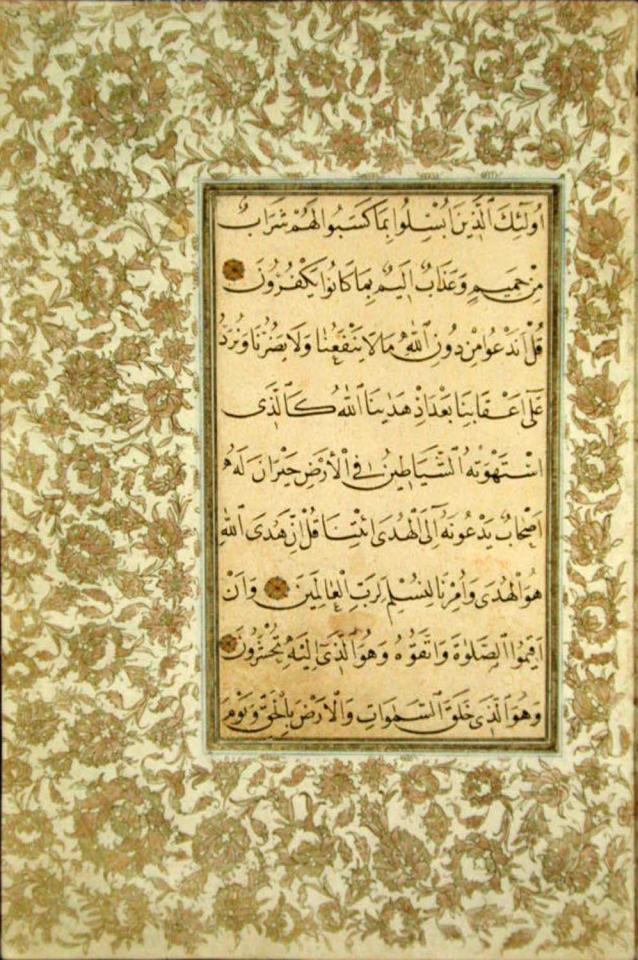 اُولٰٓئِكَ الَّذٖينَ اُبْسِلُوا بِمَا كَسَبُوا لَهُمْ شَرَابٌ
مِنْ حَمٖيمٍ وَعَذَابٌ اَلٖيمٌ بِمَا كَانُوا يَكْفُرُونَ
قُلْ اَنَدْعُوا مِنْ دُونِ اللّٰهِ مَا لَا يَنْفَعُنَا وَلَا يَضُرُّنَا وَنُرَدُّ
عَلٰٓى اَعْقَابِنَا بَعْدَ اِذْ هَدٰينَا اللّٰهُ كَالَّذٖى
اسْتَهْوَتْهُ الشَّيَاطٖينُ فِى الْاَرْضِ حَيْرَانَ لَهُٓ
اَصْحَابٌ يَدْعُونَهُٓ اِلَى الْهُدَى ائْتِنَا قُلْ اِنَّ هُدَى اللّٰهِ
هُوَ الْهُدٰى وَاُمِرْنَا لِنُسْلِمَ لِرَبِّ الْعَالَمٖينَ وَاَنْ
اَقٖيمُوا الصَّلٰوةَ وَاتَّقُوهُ وَهُوَ الَّذٖٓى اِلَيْهِ تُحْشَرُونَ
وَهُوَ الَّذٖى خَلَقَ السَّمٰوَاتِ وَالْاَرْضَ بِالْحَقِّ وَيَوْمَ